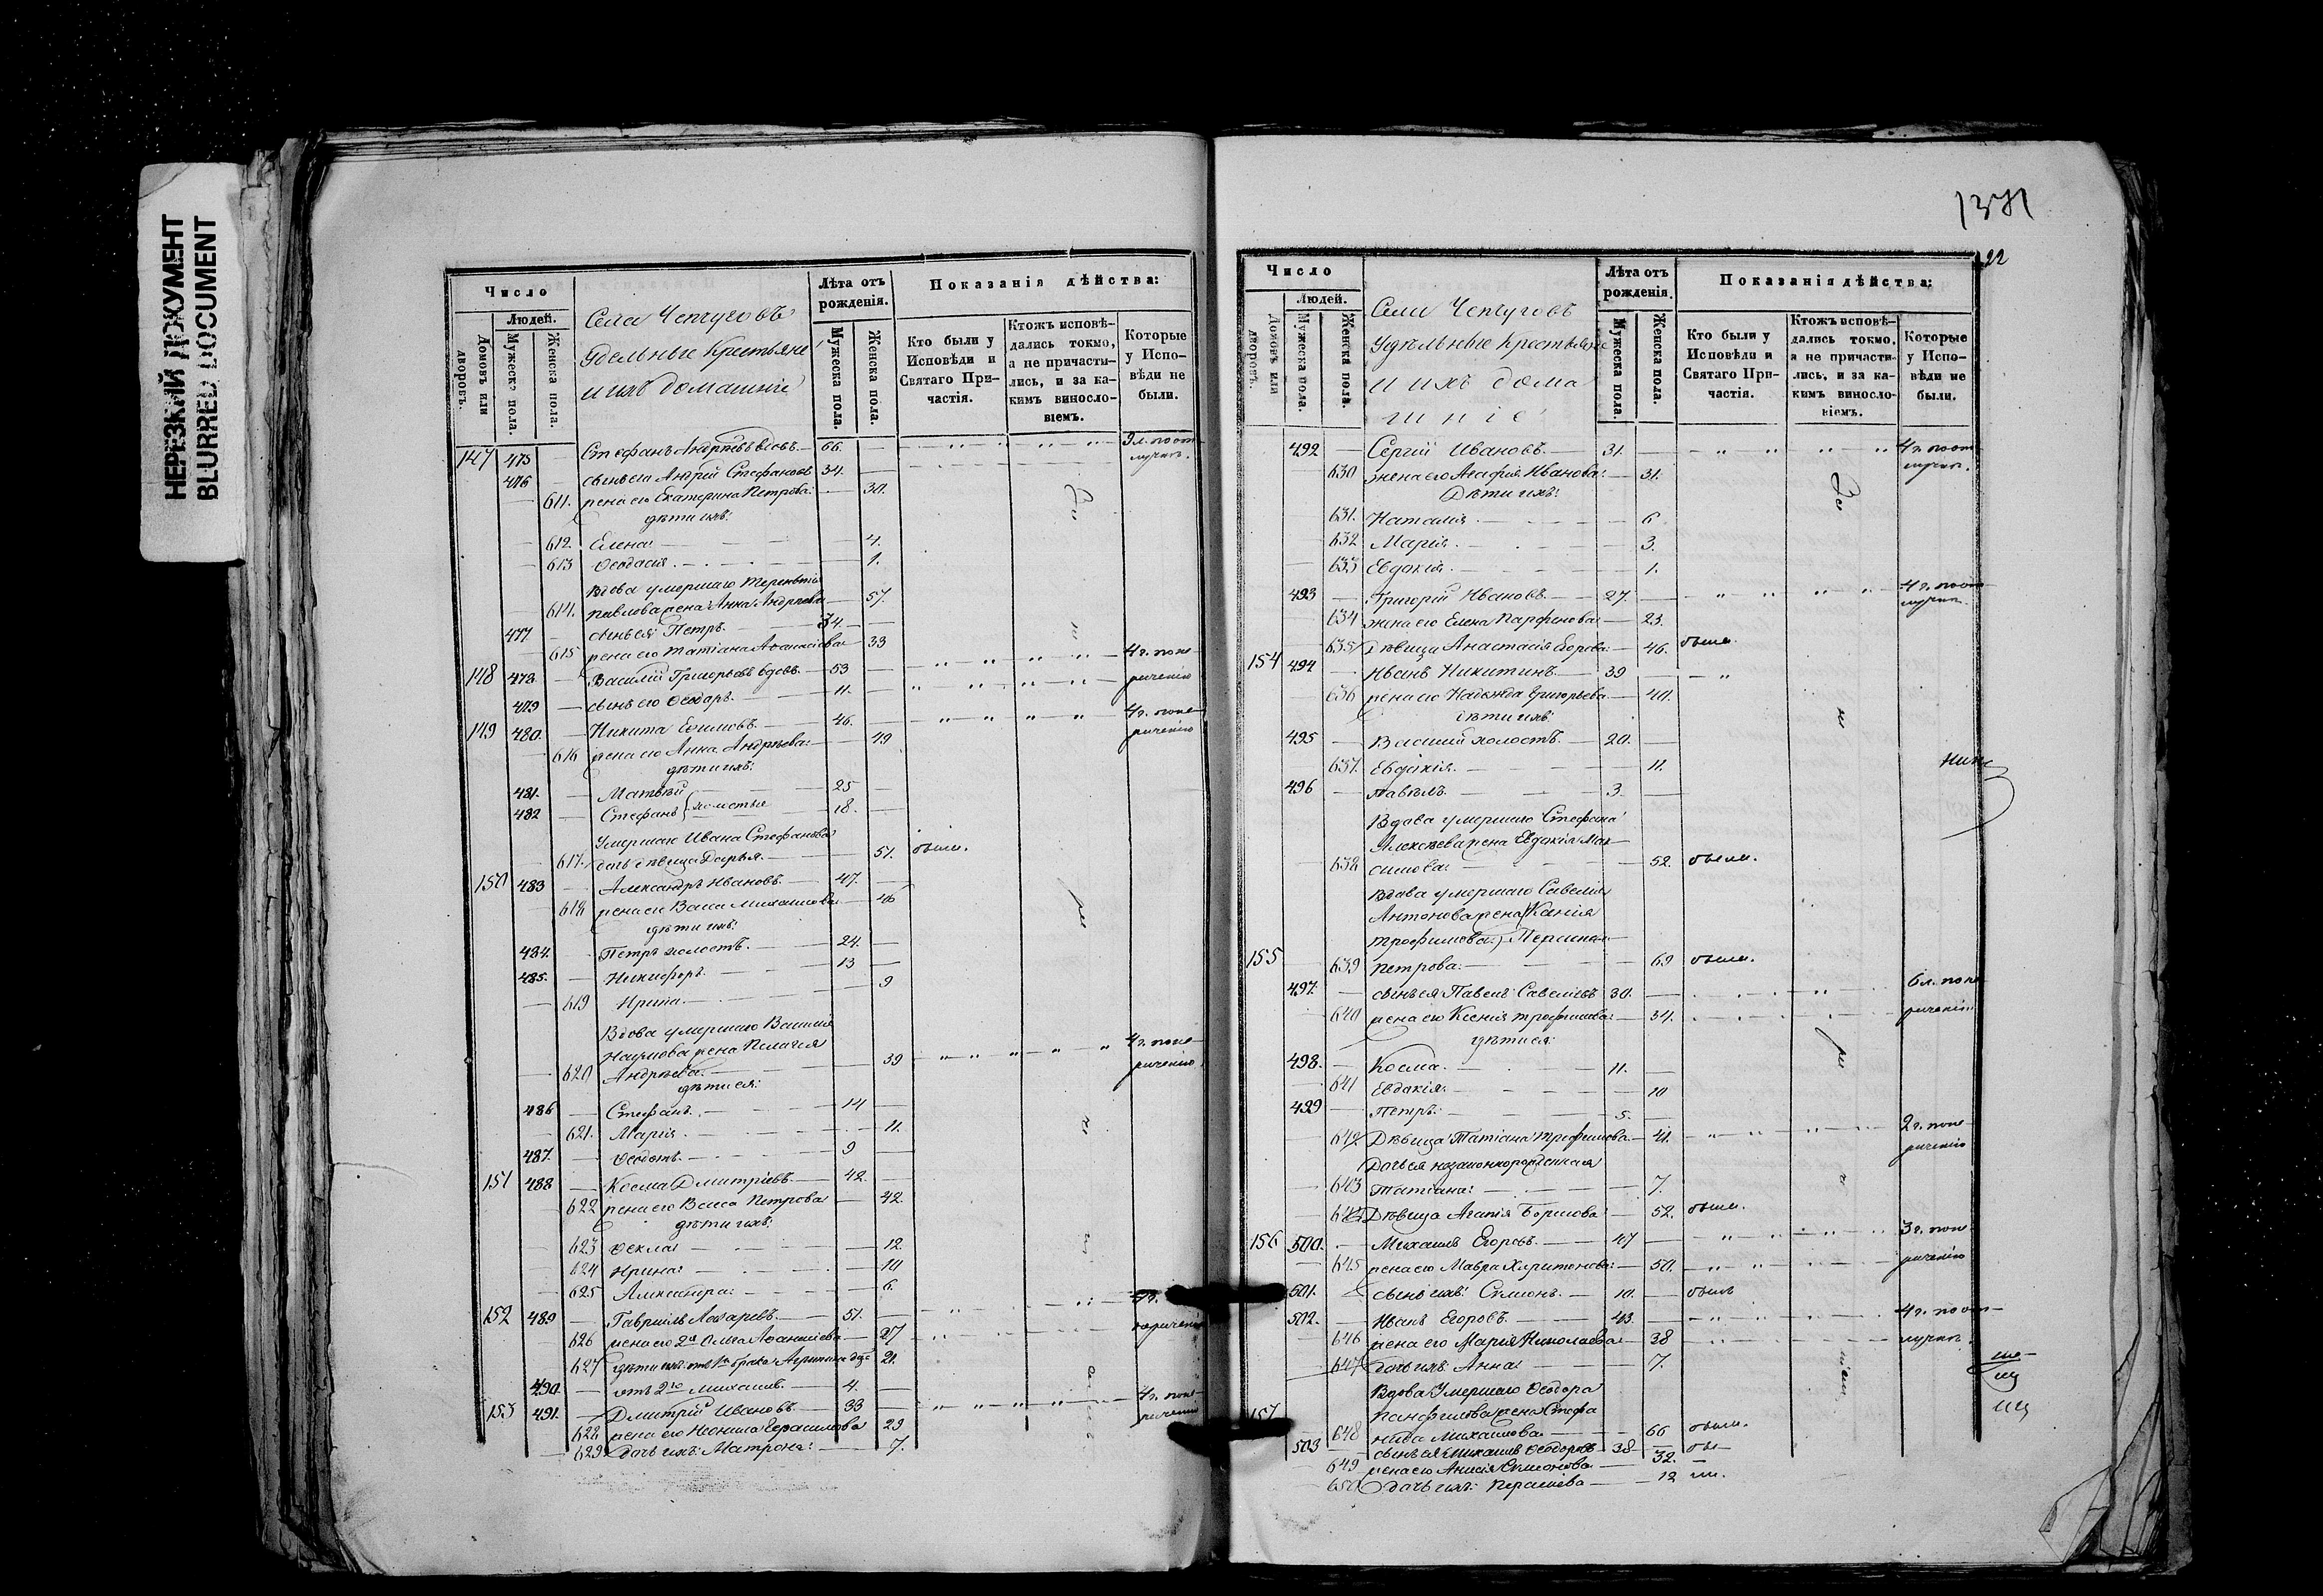 НЕРЕЗКИЙ ДОКУМЕНТ
BLURRED DOCUMENT
Число
Людей.
Домовъ или дворовъ.
Мужеска пола.
Женска пола.
Села Чепчуговъ
Удельные Крестьяне
и ихъ домашніе
Лѣта отъ рожденія.
Мужеска пола.
Женска пола.
Показанія дѣйства:
Кто были у Исповѣди и Святаго Причастія.
Ктожъ исповѣдались токмо, а не причастились, и за какимъ винословіемъ.
Которые у Исповѣди не были.
147 475 Стефанъ Андрѣевъ вдовъ 66. 9 л. по отлучк.
476 сынъ его Андрей Стефановъ 34.
611. жена его Екатерина Петрова 30.
дѣти ихъ:
612 Елена 4.
613 Ѳеодосія 1.
Вдова умершаго Терентія
614. Павлова жена Анна Андрѣева 57.
477 сынъ ея Петръ 34.
615 жена его Татіана Аѳанасіева 33
148 478 Василій Григорьевъ вдовъ 53 4 г. по нерачению
479 сынъ его Ѳеодоръ 11.
149 480 Никита Ефимовъ 46. 4 г. по нерачению
616 жена его Анна Андрѣева 49
дѣти ихъ:
481. Матвѣй 25
482 Стефанъ холостые 18.
Умершаго Ивана Стефанова
617. дочь дѣвица Дарья 51. были.
150 483 Александръ Ивановъ 47.
618 жена его Васса Михаилова 46
дѣти ихъ:
484. Петръ холостъ 24.
485. Никифоръ 13
619 Ирина 9
Вдова умершаго Василія
Наумова жена Пелагея
620 Андрѣева 39 4 г. по нерачению
дѣти ея:
486 Стефанъ 14
621. Марія 11.
487. Ѳеодотъ 9
151 488 Косма Дмитріевъ 42.
622 жена его Васса Петрова 42.
дѣти ихъ:
623 Ѳекла 12
624 Ирина 10
625 Александра 6.
152 489 Гавріилъ Лазаревъ 51. 4 г. по нерачению
626 жена его 2я Аѳанасіева 27
627 дѣти ихъ: отъ 1го брака Агрипина 21.
490. отъ 2го Михаилъ 4.
153 491. Дмитрій Ивановъ 33 4 г. по нерачению
628 жена его Неонила Герасимова 29
629 дочь ихъ: Матрона 7.
1371
22
Число
Людей.
Домовъ или дворовъ.
Мужеска пола.
Женска пола.
Села Чепчуговъ
Удѣльные Крестьяне
и ихъ дома
шніе
Лѣта отъ рожденія.
Мужеска пола.
Женска пола.
Показанія дѣйства:
Кто были у Исповѣди и Святаго Причастія.
Ктожъ исповѣдались токмо, а не причастились, и за какимъ винословіемъ.
Которые у Исповѣди не были.
492 Сергій Ивановъ 31. 4 г. по отлучк.
630 жена его Агафія Иванова 31.
Дѣти ихъ:
631. Наталія 6
632 Марія 3.
633 Евдокія 1.
493 Григорій Ивановъ 27. 4 г. по отлучк.
634 жена его Елена Парфенова 23.
635 Дѣвица Анастасія Егорова 46. были
154 494 Иванъ Никитинъ 39
636 жена его Надежда Григорьева 40.
дѣти ихъ:
495 Василій холостъ 20.
637. Евдокія 11.
496 Павелъ 3.
Вдова умершаго Стефана
Алексѣева жена Евдокія Мак
638 симова 52. были.
Вдова умершаго Савелія
Антонова жена (Ксенія
Трофимова)
155 639 Петрова 69 были.
497. сынъ ея Павелъ Савеліевъ 30. 6 л. по нерачению
640 жена его Ксенія Трофимова 34.
дѣти ея:
498. Косма 11.
641 Евдокія 10
499 Петръ 5.
642 Дѣвица Татіана Трофимова 41. 2 г. по нерачению
Дочь ея незаконнорожденная
643 Татіана 7.
644 Дѣвица Агапія 52. были.
156 500. Михаилъ Егоровъ 47 3 г. по нерачению
645 жена его Мавра Харитонова 50.
501. сынъ ихъ Симеонъ 10. былъ
502. Иванъ Егоровъ 43. 4 г. по отлучк.
646 жена его Марія Николаева 38
647 дочь ихъ Анна 7.
Вдова Умершаго Ѳеодора
Панфилова жена Стефа
157 648 нида Михаилова 66 были.
503 сынъ ея Михаилъ Ѳеодоровъ 38 бы-
649 жена его Анисія Симонова 32. -
650 дочь ихъ: Параскева 12 ли.